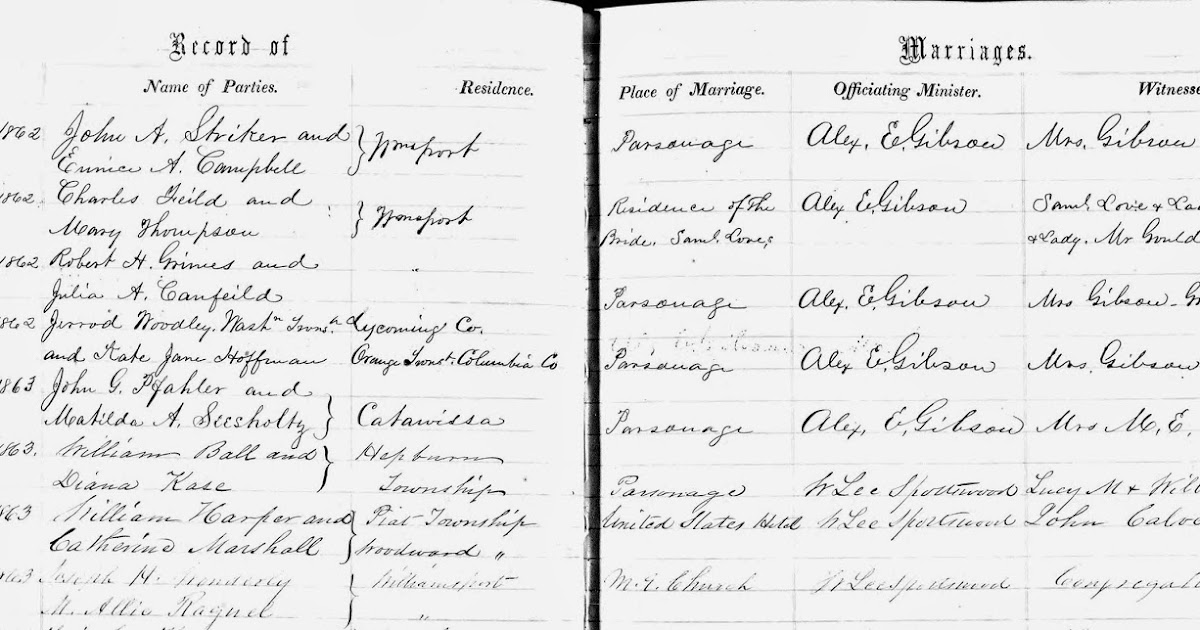 Record of Marriages.
Name of Parties. Residence. Place of Marriage. Officiating Minister. Witnesse
1862 John A. Striker and } Wmsport Parsonage Alex. E. Gibson Mrs. Gibson
Eunice A. Campbell
1862 Charles Feild and } Wmsport Residence of the Alex E. Gibson Saml. Love & Lad
Mary Thompson Bride. Saml. Love, & Lady. Mr Gould
1862 Robert H. Grimes and "
Julia A. Canfeild Parsonage Alex. E. Gibson Mrs Gibson
1862 Jerrod Woodley. Washn Twnsh Lycoming Co.
and Kate Jane Hoffman Orange Twnst. Columbia Co Parsonage Alex E. Gibson Mrs. Gibson
1863 John G. Pfahler and
Matilda A. Seesholtz } Catawissa Parsonage Alex. E. Gibson Mrs M. E.
1863. William Ball and } Hepburn
Diana Kase Township Parsonage W Lee Spottswood Lucy M & Will
1863 William Harper and } Piat Township United States Hotel W Lee Spottswood John
Catherine Marshall Woodward "
1863 Joseph H. } Williamsport M. E. Church W Lee Spottswood Congregat
M. Allie "